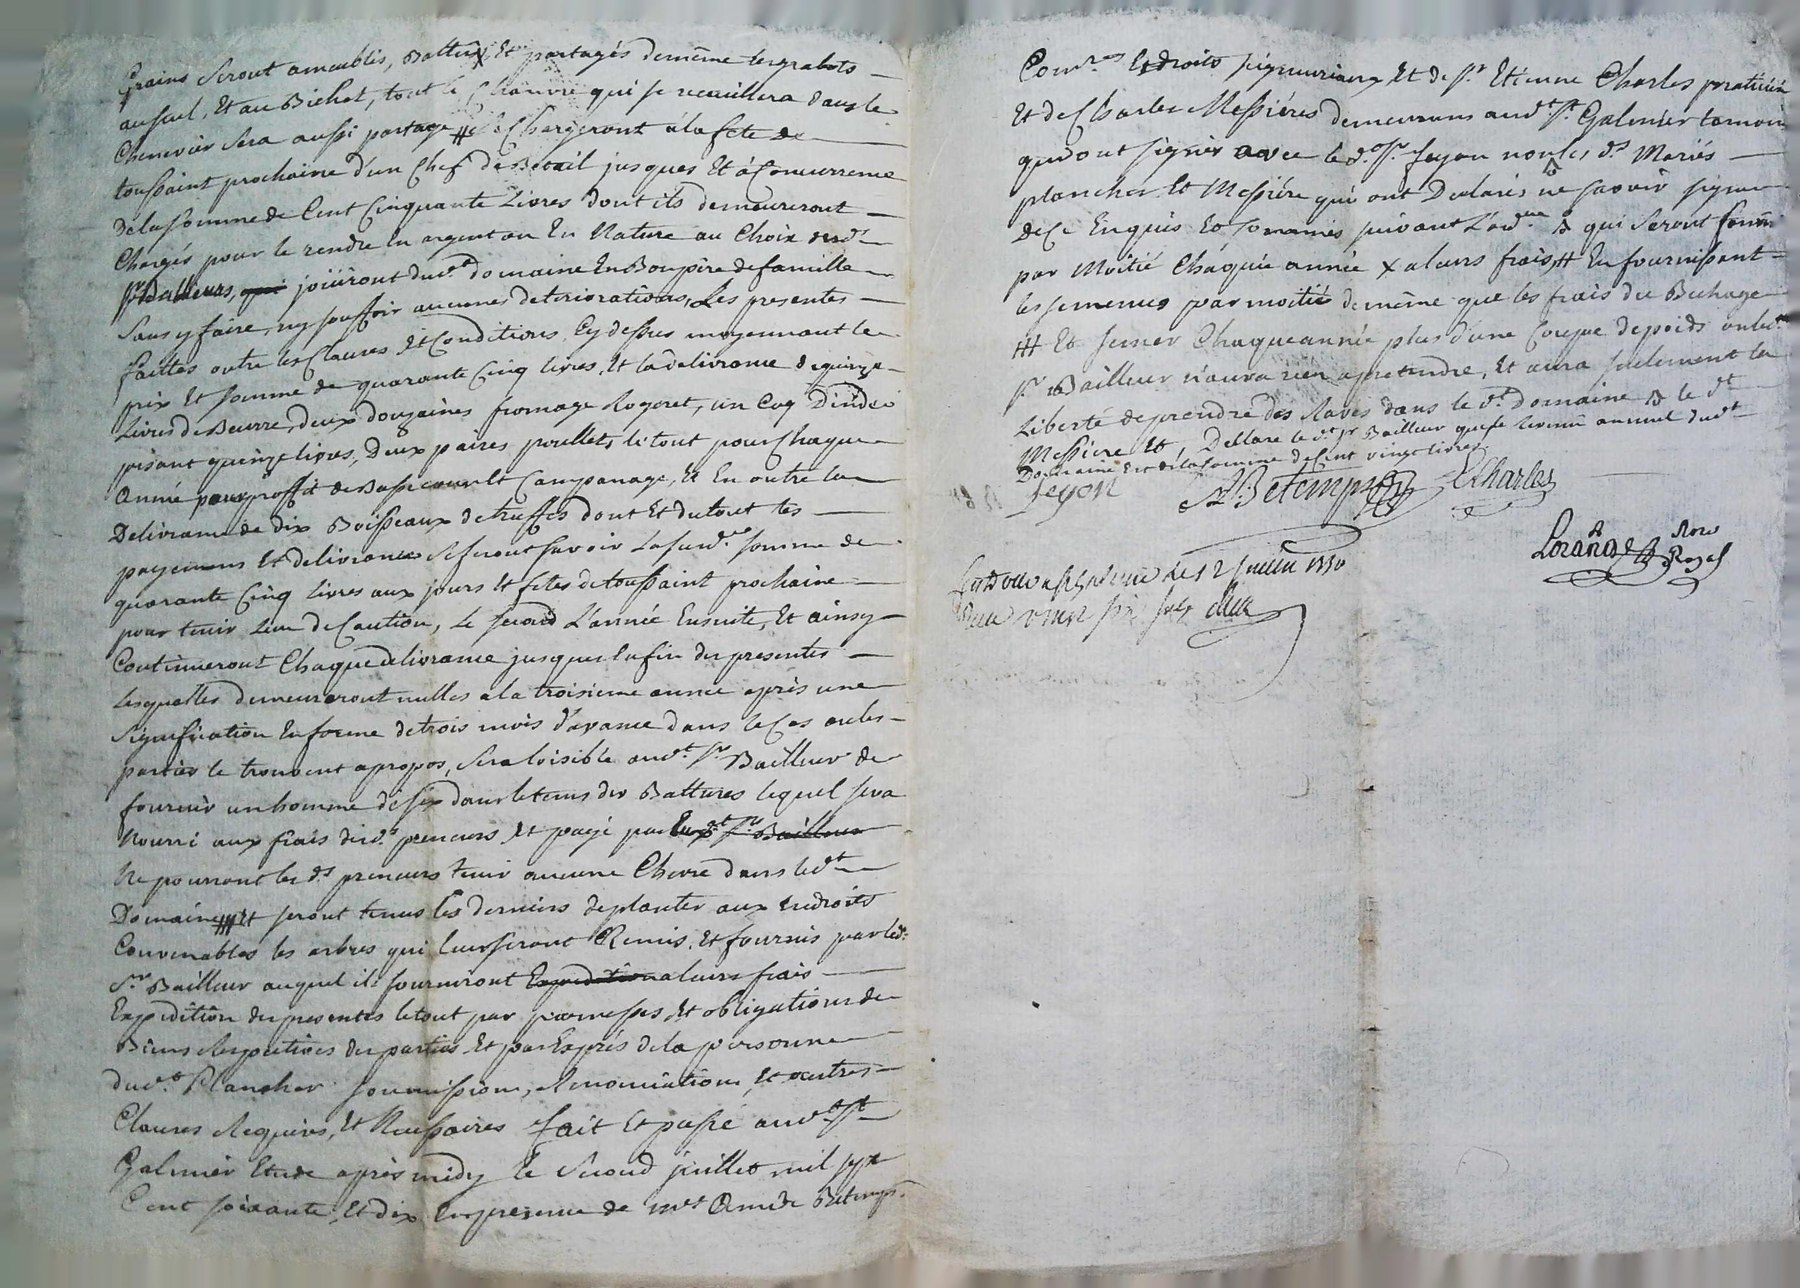 Grains seront ameublés, Battus Et partagés demême les grabots
au seul, Et au Bichet, tout le Chanvre qui se recuillera dans le
Chenevier sera aussi partagé # se Chargeront á la fete de
toussaint prochaine d'un Chef de Betail jusques Et à Concurrence
de la somme de Cent Cinquante Livres dont ils demeureront
Chargés pour le rendre En argent ou En Nature au Choix dud.t
Sr Bailleurs, qui joüiront dud.t domaine En Bon pére de famille
Sans y faire, ny souffrir aucunes deteriorations, Les presentes
faittes outre les Clauses Et Conditions Cy dessus moyennant le
prix Et somme de quarante Cinq livres, Et la delivrance de quinze
Livres de Beurre, deux douzaines fromage Rogeret, un Coq Dinde
pesant quinze livres, Deux paires poullets le tout pour Chaque
année pour proffit de Bassecour Et Campanage, Et En outre la
Delivrance de dix Boisseaux de truffes dont Et du tout les
payemens Et delivrances se feront savoir La susd.e somme de
quarante Cinq livres aux jours Et fetes de toussaint prochaine
pour tenir lieu de Caution, Le second L'année Ensuite, Et ainsy
Continueront Chaque delivrance jusques la fin des presentes
Lesquelles demeureront nulles a la troisieme année après une
signification En forme de trois mois d'avance dans le Cas ou les
parties le trouvent apropos, sera loisible aud.t Sr Bailleur de
fournir un homme dans le tems des Battures lequel sera
Nourri aux frais desd.s preneurs Et payé par led.t Sr Bailleur
Ne pourront les d.s preneurs tenir aucune Chevre dans led.t
Domaine ## Et seront tenus Ces derniers de planter aux Endroits
Convenables les arbres qui leur seront Remis, Et fournis par led.t
Sr Bailleur auquel ils fourniront Expedition a leurs frais
Expedition des presentes le tout par promesses, Et obligations de
Biens Respectives des parties Et par Exprés de la personne
dud.t Plancher soumission, Renonciation, Et autres
Clauses Requises, Et Necessaires fait Et passé aud.t St
Galmier Etude après midy le second juillet mil sept
Cent soixante, Et dix En presence de me
Et droits seigneuriaux Et de Sr Etienne Charles praticien
Et de Charles Messiéres demeurans aud.t St Galmier temoins
qui ont signés avec le d.t Sr Jeyon non les d.s Mariés
plancher Et Messiére qui ont Declarés ne savoir signer
de Ce Enquis Et sommés suivant L'ord.ce qui seront fournis
par Moitié Chaque année X a leurs frais, # En fournissant
les semences par moitié demême que les frais du Bechage
### Et semer Chaque année plus d'une Coupe de poids ou led.t
Sr Bailleur n'aura rien a pretendre, Et aura seulement la
Liberté de prendre des Raves dans le d.t Domaine le d.t
Messiere Declare le d.t Sr Bailleur que le revenu annuel dud.t
Domaine Est de la somme de Cent vingt livres
Jeyon Betemps ECharles
Not
Royal
12 juillet 1770